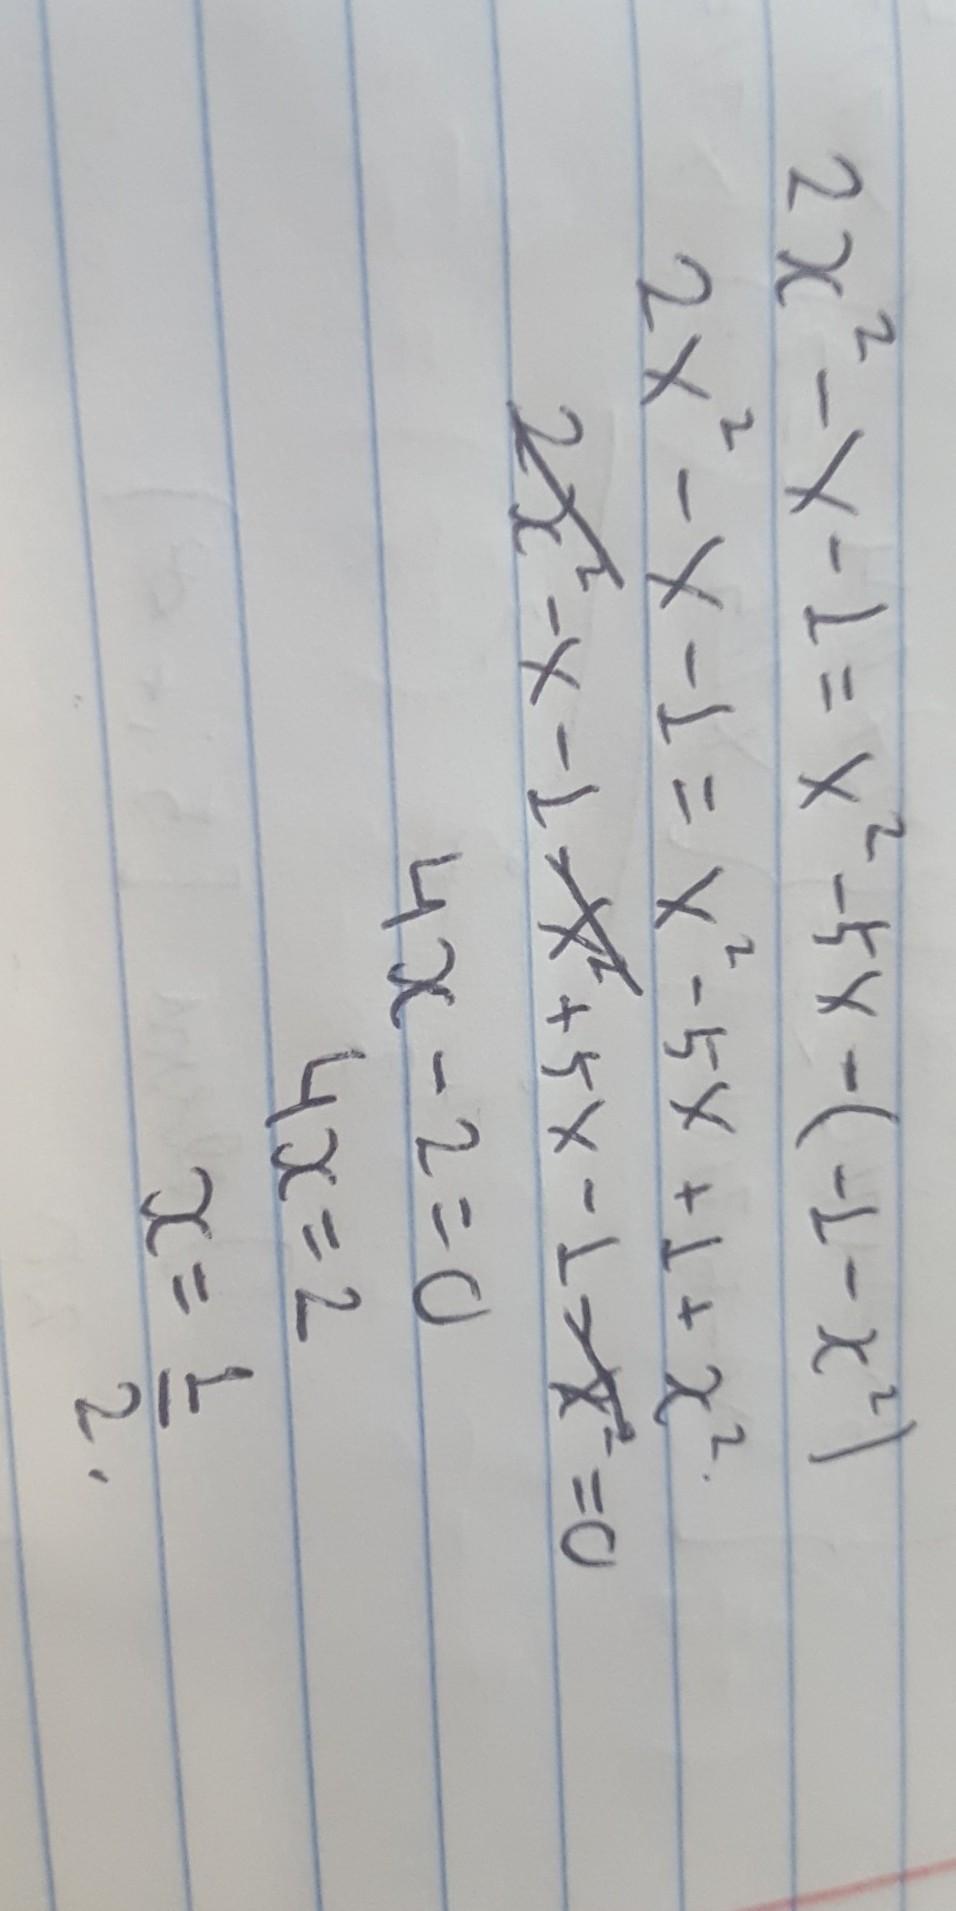 2x² - x - 1 = x² - 5x - (-1 - x²)
2x² - x - 1 = x² - 5x + 1 + x².
2x² - x - 1 - x² + 5x - 1 - x² = 0
4x - 2 = 0
4x = 2
x = 1/2.